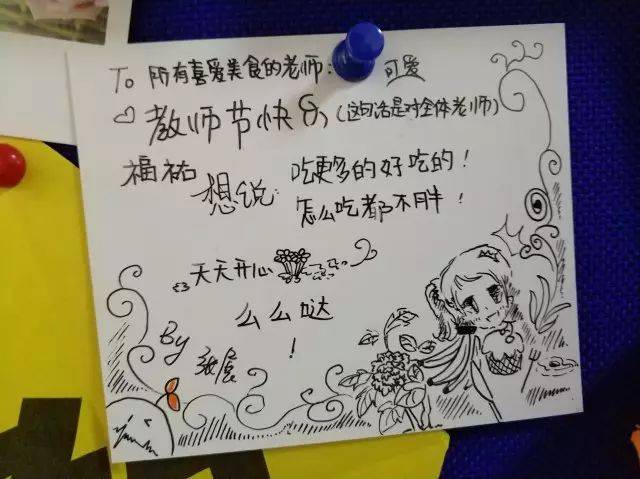 To 所有喜爱美食的老师：可爱
教师节快乐（这句话是对全体老师）
福祐
想说：吃更多的好吃的！
怎么吃都不胖！
天天开心
么么哒
！
By